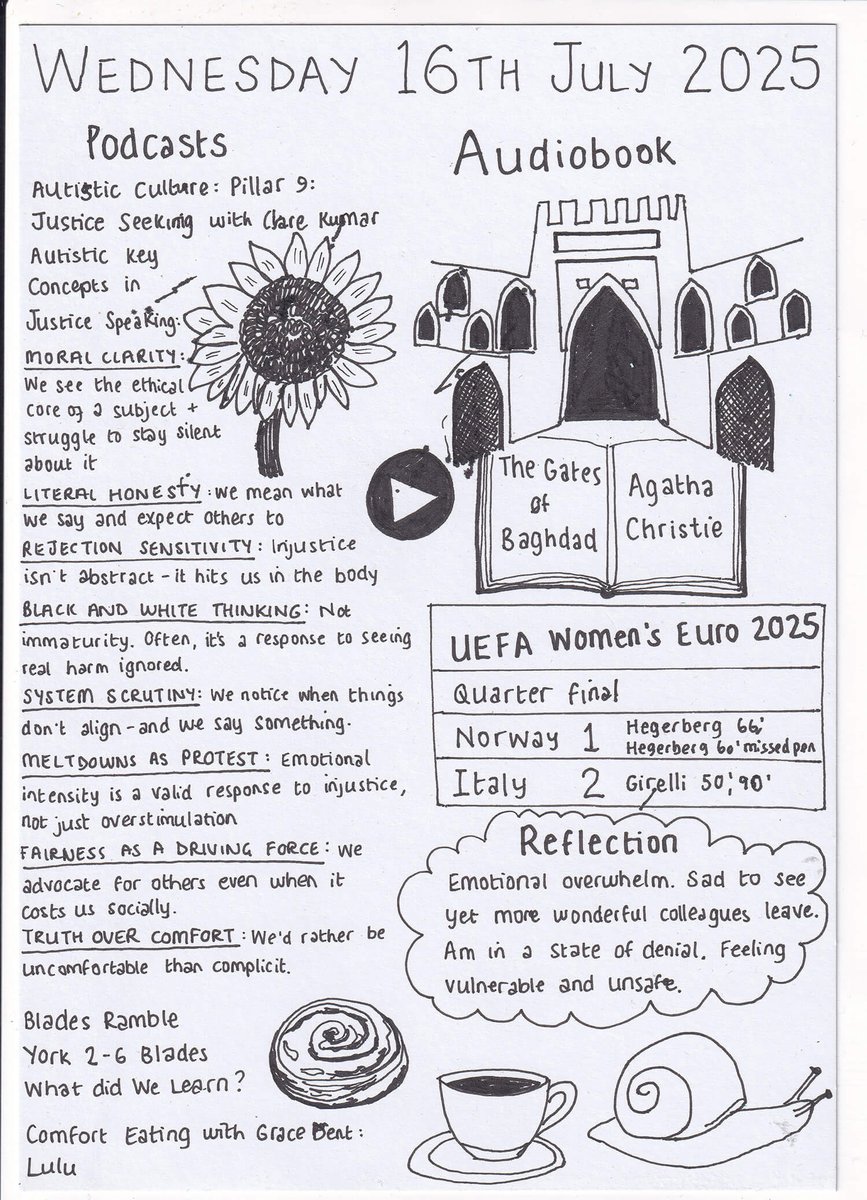 WEDNESDAY 16TH JULY 2025
Podcasts
Autistic Culture: Pillar 9:
Justice Seeking with Clare Kumar
Autistic key
Concepts in
Justice Speaking:
MORAL CLARITY:
We see the ethical
core of a subject +
struggle to stay silent
about it
LITERAL HONESTY: we mean what
we say and expect others to
REJECTION SENSITIVITY: Injustice
isn't abstract - it hits us in the body
BLACK AND WHITE THINKING: Not
immaturity. Often, it's a response to seeing
real harm ignored.
SYSTEM SCRUTINY: We notice when things
don't align - and we say something.
MELTDOWNS AS PROTEST: Emotional
intensity is a valid response to injustice,
not just overstimulation
FAIRNESS AS A DRIVING FORCE: We
advocate for others even when it
costs us socially.
TRUTH OVER COMFORT: We'd rather be
uncomfortable than complicit.
Blades Ramble
York 2-6 Blades
What did We Learn?
Comfort Eating with Grace Dent:
Lulu
Audiobook
The Gates
of
Baghdad
Agatha
Christie
UEFA Women's Euro 2025
Quarter final
Norway 1 Hegerberg 66'
Hegerberg 60' missed pen
Italy 2 Girelli 50', 90'
Reflection
Emotional overwhelm. Sad to see
yet more wonderful colleagues leave.
Am in a state of denial. Feeling
vulnerable and unsafe.